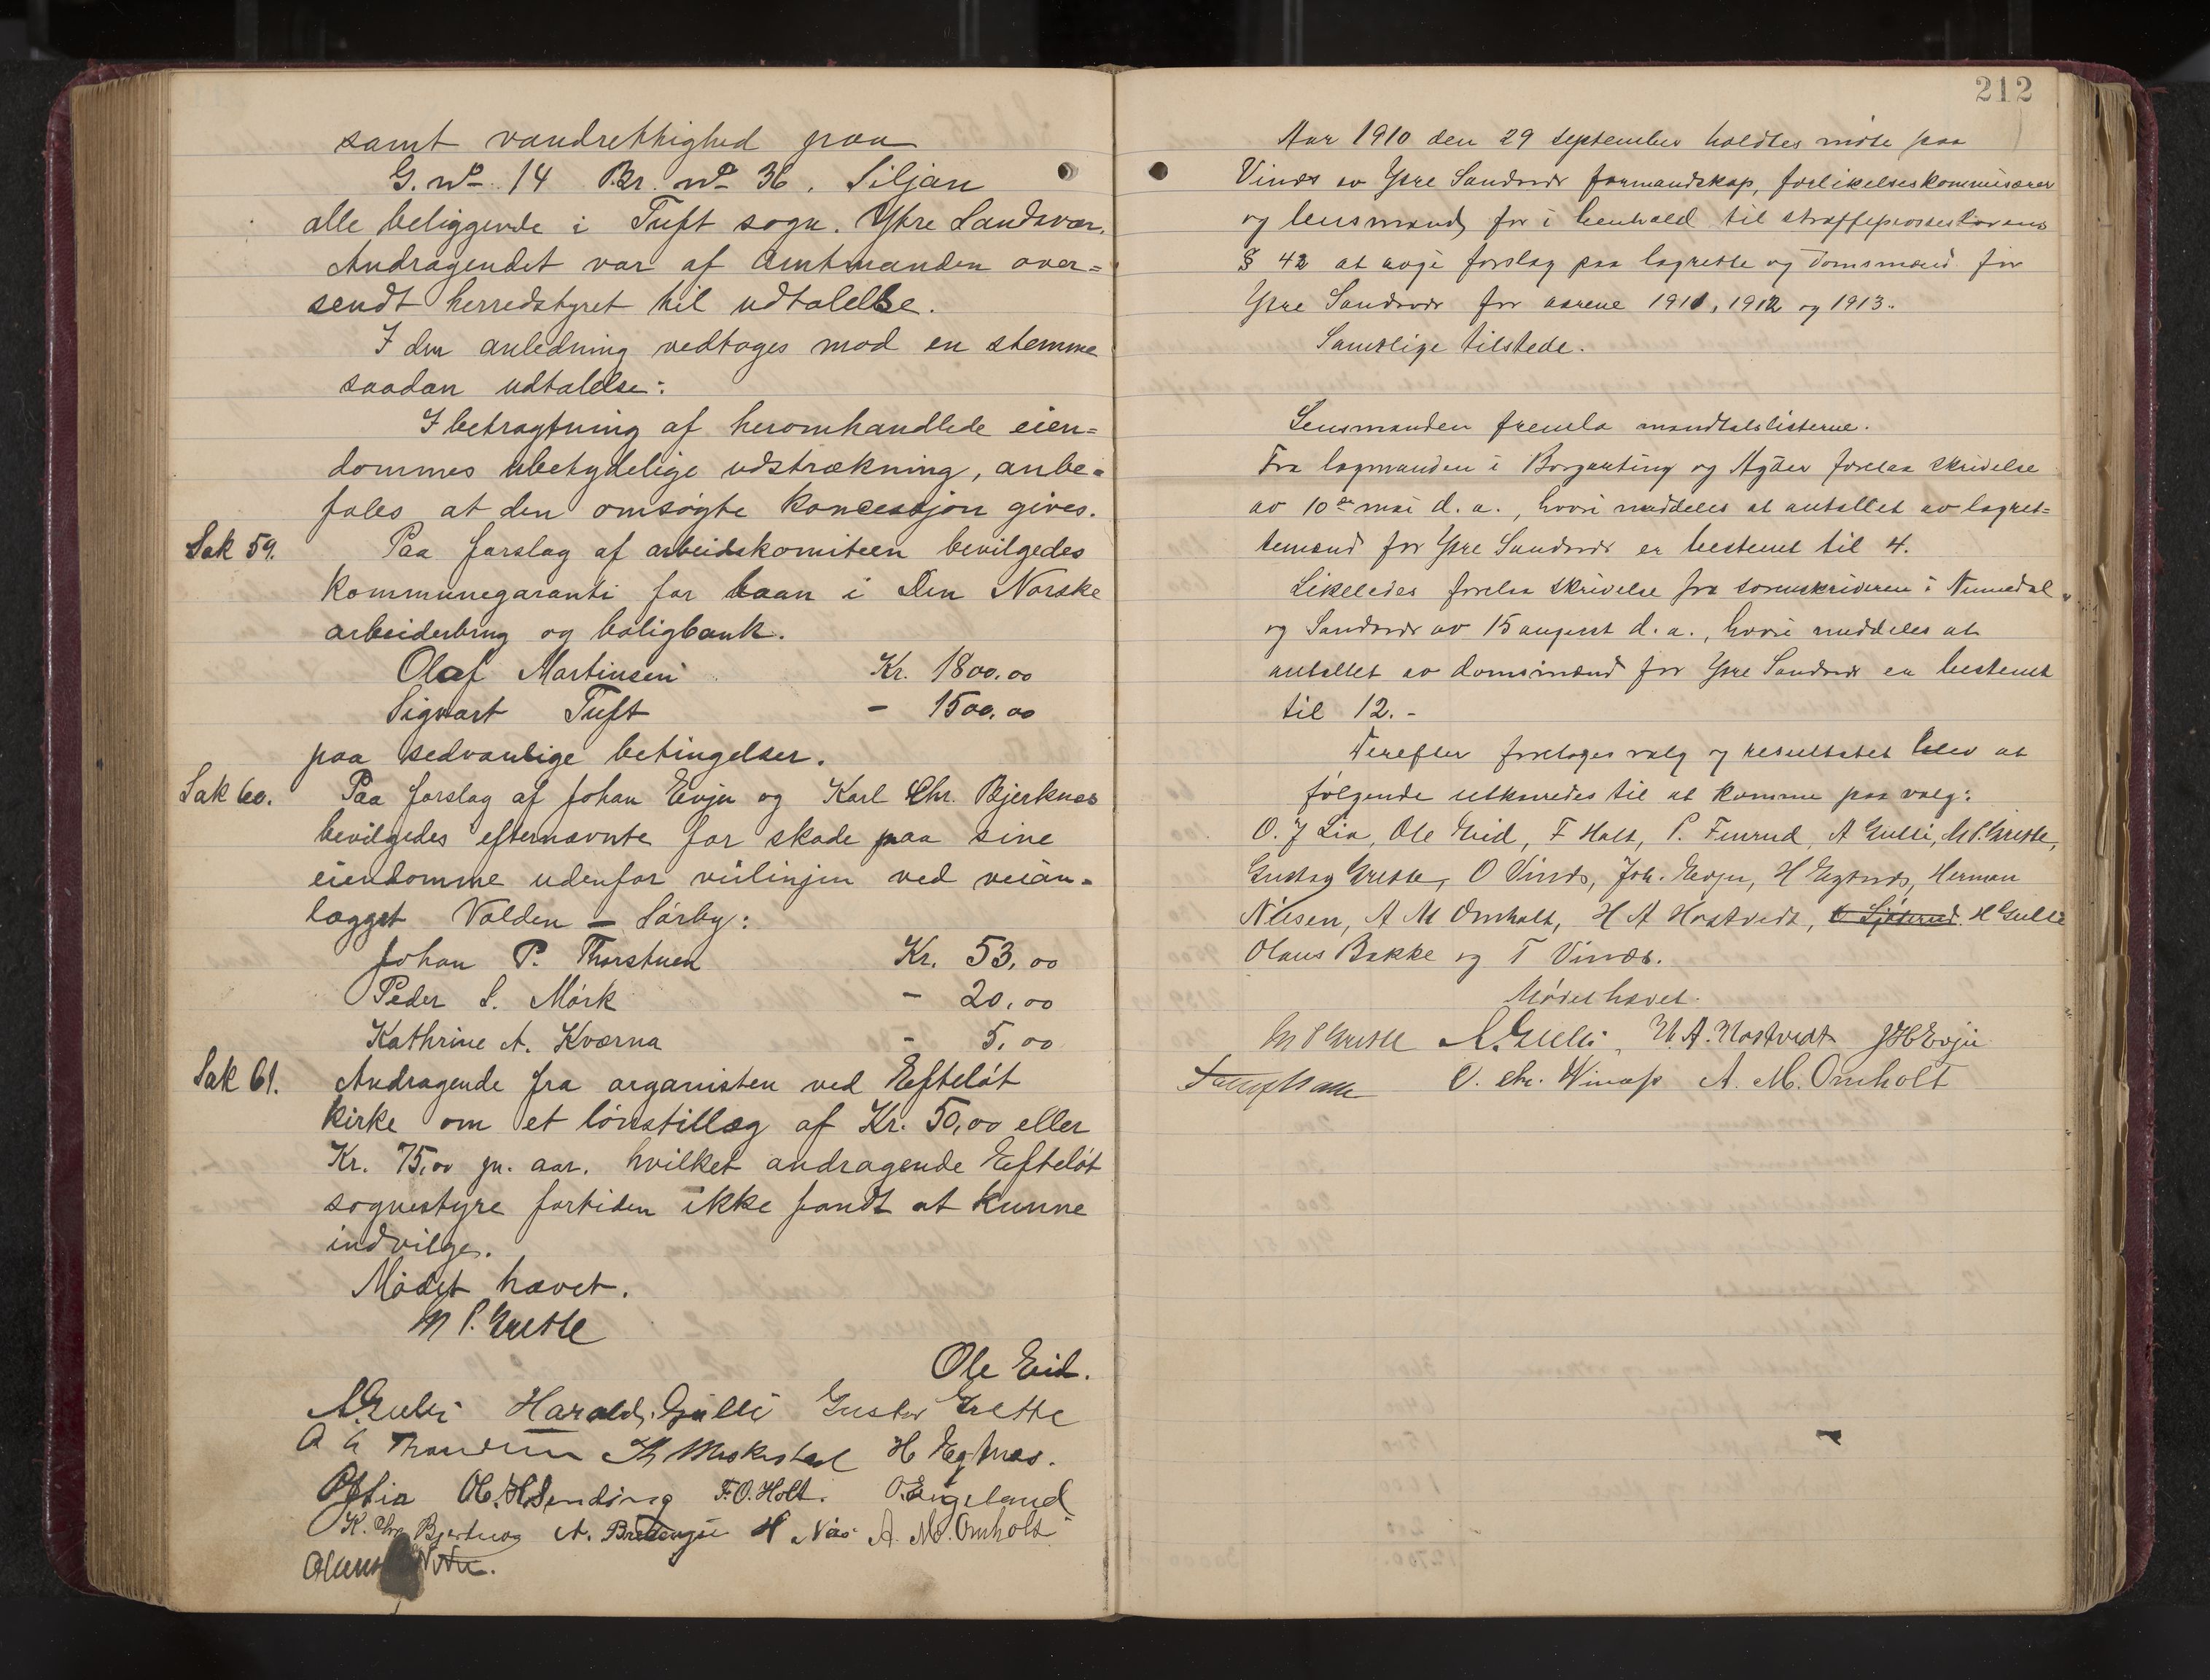 samt vandrettighed paa
G. no 14 Br. no 36. Siljan
alle beliggende i Tuft sogn. Ytre Sandsvær.
Andragendet var af amtmanden over=
sendt herredstyret til udtalelse.
I den anledning vedtoges mod en stemme
saadan udtalelse:
I betragtning af heromhandlede eien=
dommes ubetydelige udstrækning, anbe=
fales at den omsøgte koncession gives.
Sak 59. Paa forslag af arbeidskomiteen bevilgedes
kommunegaranti for laan i Den Norske
arbeiderbrug og boligbank.
Olaf Martinsen Kr. 1800,00
Sigvart Tuft - 1500,00
paa sedvanlige betingelser.
Sak 60. Paa forslag af Johan Evju og Karl Chr. Bjerknes
bevilgedes efternævnte for skade paa sine
eiendomme udenfor veilinjen ved veian=
lægget Volden - Sørby:
Johan P. Thorstuen Kr. 53,00
Peder S. Mørk - 20,00
Kathrine A. Kværna - 5,00
Sak 61. Andragende fra organisten ved Efteløt
kirke om et lønstillæg af Kr. 50,00 eller
Kr. 75,00 pr. aar. hvilket andragende Efteløt
sognestyre fortiden ikke fandt at kunne
indvilge.
Mødet hævet.
M P. Grette
Ole Eid.
A. Gulli Harald Gulli Gustav Grette
H Egtnæs.
O J Lia F. O. Holt. O. Engeland
K. Chr. Bjerknes A. H Næs A. M. Omholt
212
Aar 1910 den 29 september holdtes møte paa
Vinæs av Ytre Sandsvær formandskap, forlikelseskommisærer
og lensmand, for i henhold til straffeprosesslovens
§ 42 at avgi forslag paa lagrette og domsmænd for
Ytre Sandsvær for aarene 1911, 1912 og 1913.
Samtlige tilstede.
Lensmanden fremla mandtalslisterne.
Fra lagmanden i Borgarting og Agder forelaa skrivelse
av 10de mai d. a., hvori meddeles at antallet av lagret=
temænd for Ytre Sandsvær er bestemt til 4.
Likeledes forelaa skrivelse fra sorenskriveren i Numedal
og Sandsvær av 15 august d. a., hvori meddeles at
antallet av domsmænd for Ytre Sandsvær er bestemt
til 12. -
Derefter foretoges valg og resultatet blev at
følgende utkaaredes til at komme paa valg:
O. J Lia, Ole Eid, F Holt, P. Finrud, A Gulli, M. P. Grette,
Gustav Grette, O Vinæs, Joh. Evju, H Egtnæs, Herman
Nilsen, A M Omholt, H A Hostvedt, H Gulli
Olaus Bakke og T Vinæs.
Mødet hævet.
M P Grette A. Gulli, H. A. Hostvedt J H Evju
O. Chr. Winæss A. M. Omholt